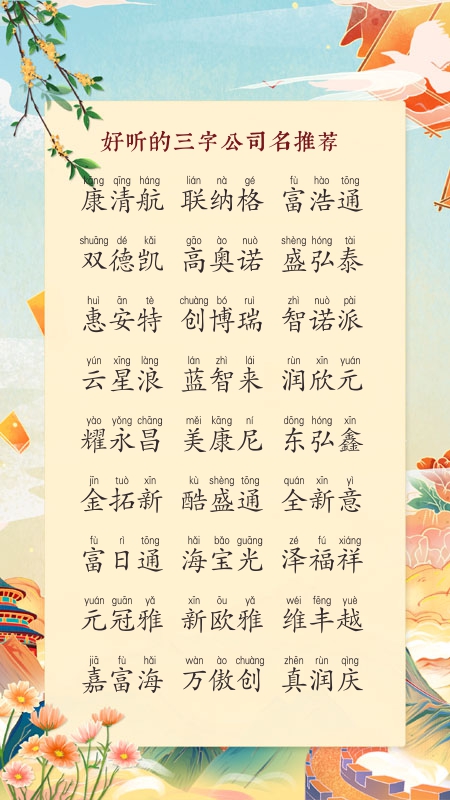 好听的三字公司名推荐
kāng qīng háng lián nà gé fù hào tōng
康清航 联纳格 富浩通
shuāng dé kǎi gāo ào nuò shèng hóng tài
双德凯 高奥诺 盛弘泰
huì ān tè chuàng bó ruì zhì nuò pài
惠安特 创博瑞 智诺派
yún xīng làng lán zhì lái rùn xīn yuán
云星浪 蓝智来 润欣元
yào yǒng chāng měi kāng ní dōng hóng xīn
耀永昌 美康尼 东弘鑫
jīn tuò xīn kù shèng tōng quán xīn yì
金拓新 酷盛通 全新意
fù rì tōng hǎi bǎo guāng zé fú xiáng
富日通 海宝光 泽福祥
yuán guān yǎ xīn ōu yǎ wéi fēng yuè
元冠雅 新欧雅 维丰越
jiā fù hǎi wàn ào chuàng zhēn rùn qìng
嘉富海 万傲创 真润庆